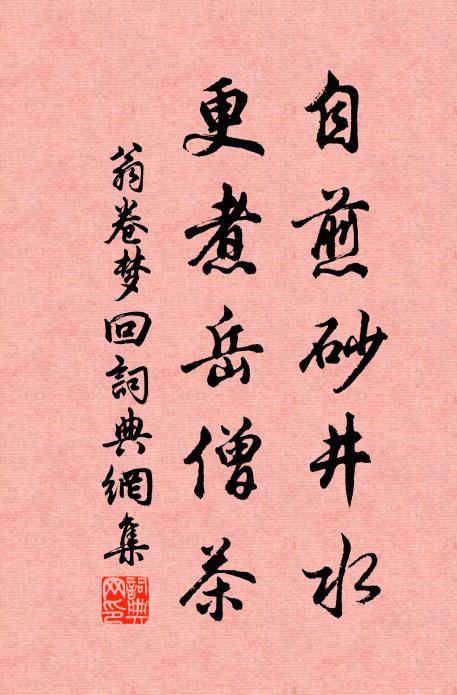 自煎砂井水
更煮岳僧茶
翁卷梦回詞典網集
詞典網印